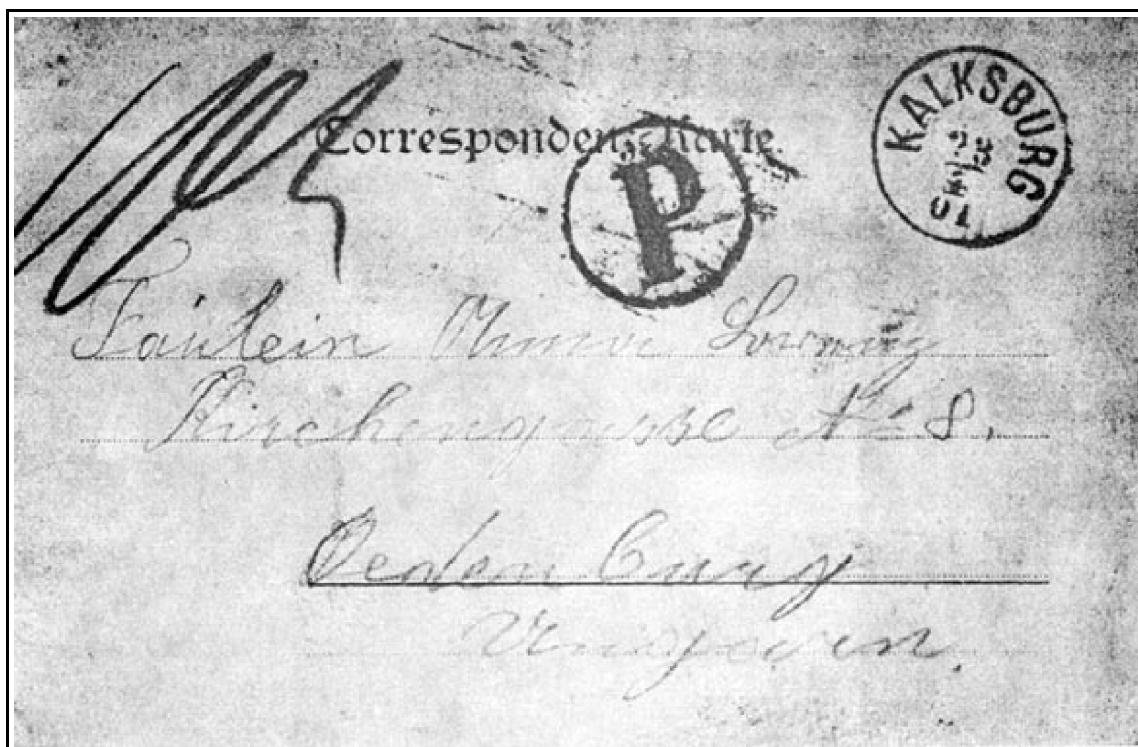 Correspondenz-Karte.
P
KALKSBURG
01
Faülein Anna
Kirchengasse № 8.
Oedenburg
Ungarn.